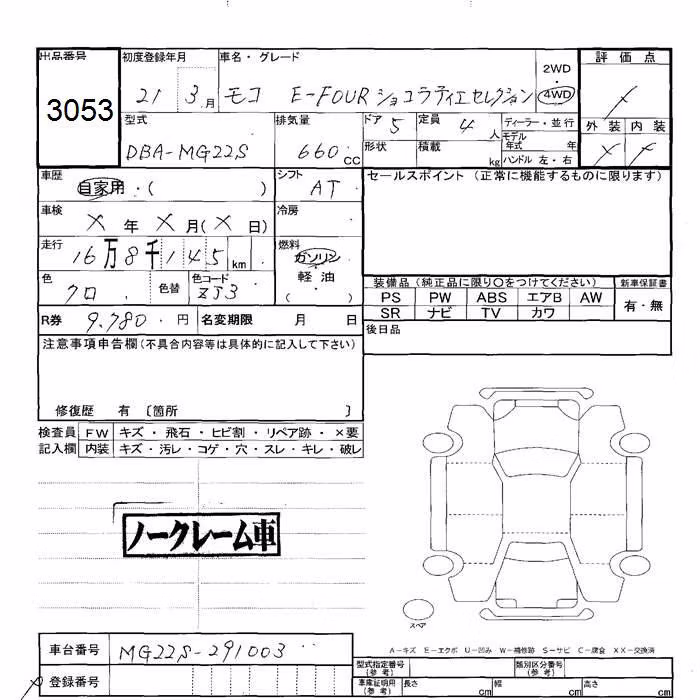 出品番号 初度登録年月 車名・グレード 2WD 評価点
3053 21 3月 モコ E-FOUR ショコラティエセレクション 4WD X
型式 排気量 ドア 定員 ディーラー・並行 外装 内装
DBA-MG22S 660cc 5 4人 モデル年式 年 X
形状 積載 kg ハンドル 左・右
車歴 シフト セールスポイント (正常に機能するものに限ります)
自家用・( ) AT
車検 冷房
X年X月(X日)
走行 燃料
16万8千145km ガソリン・軽油・( )
色 色替 色コード 装備品 (純正品に限り○をつけてください) 新車保証書
クロ ZJ3 PS PW ABS エアB AW 有・無
SR ナビ TV カワ
R券 9.780・円 名変期限 月 日 後日品
注意事項申告欄(不具合内容等は具体的に記入して下さい)
修復歴 有 〔箇所 〕
検査員 FW キズ・飛石・ヒビ割・リペア跡・×要
記入欄 内装 キズ・汚レ・コゲ・穴・スレ・キレ・破レ
ノークレーム車
スペア
A-キズ E-エクボ U-凹み W-補修跡 S-サビ C-腐食 XX-交換済
車台番号 MG22S-291003 型式指定番号(参考) 類別区分番号(参考)
登録番号 車庫証明用(参考) 長さ cm 幅 cm 高さ cm